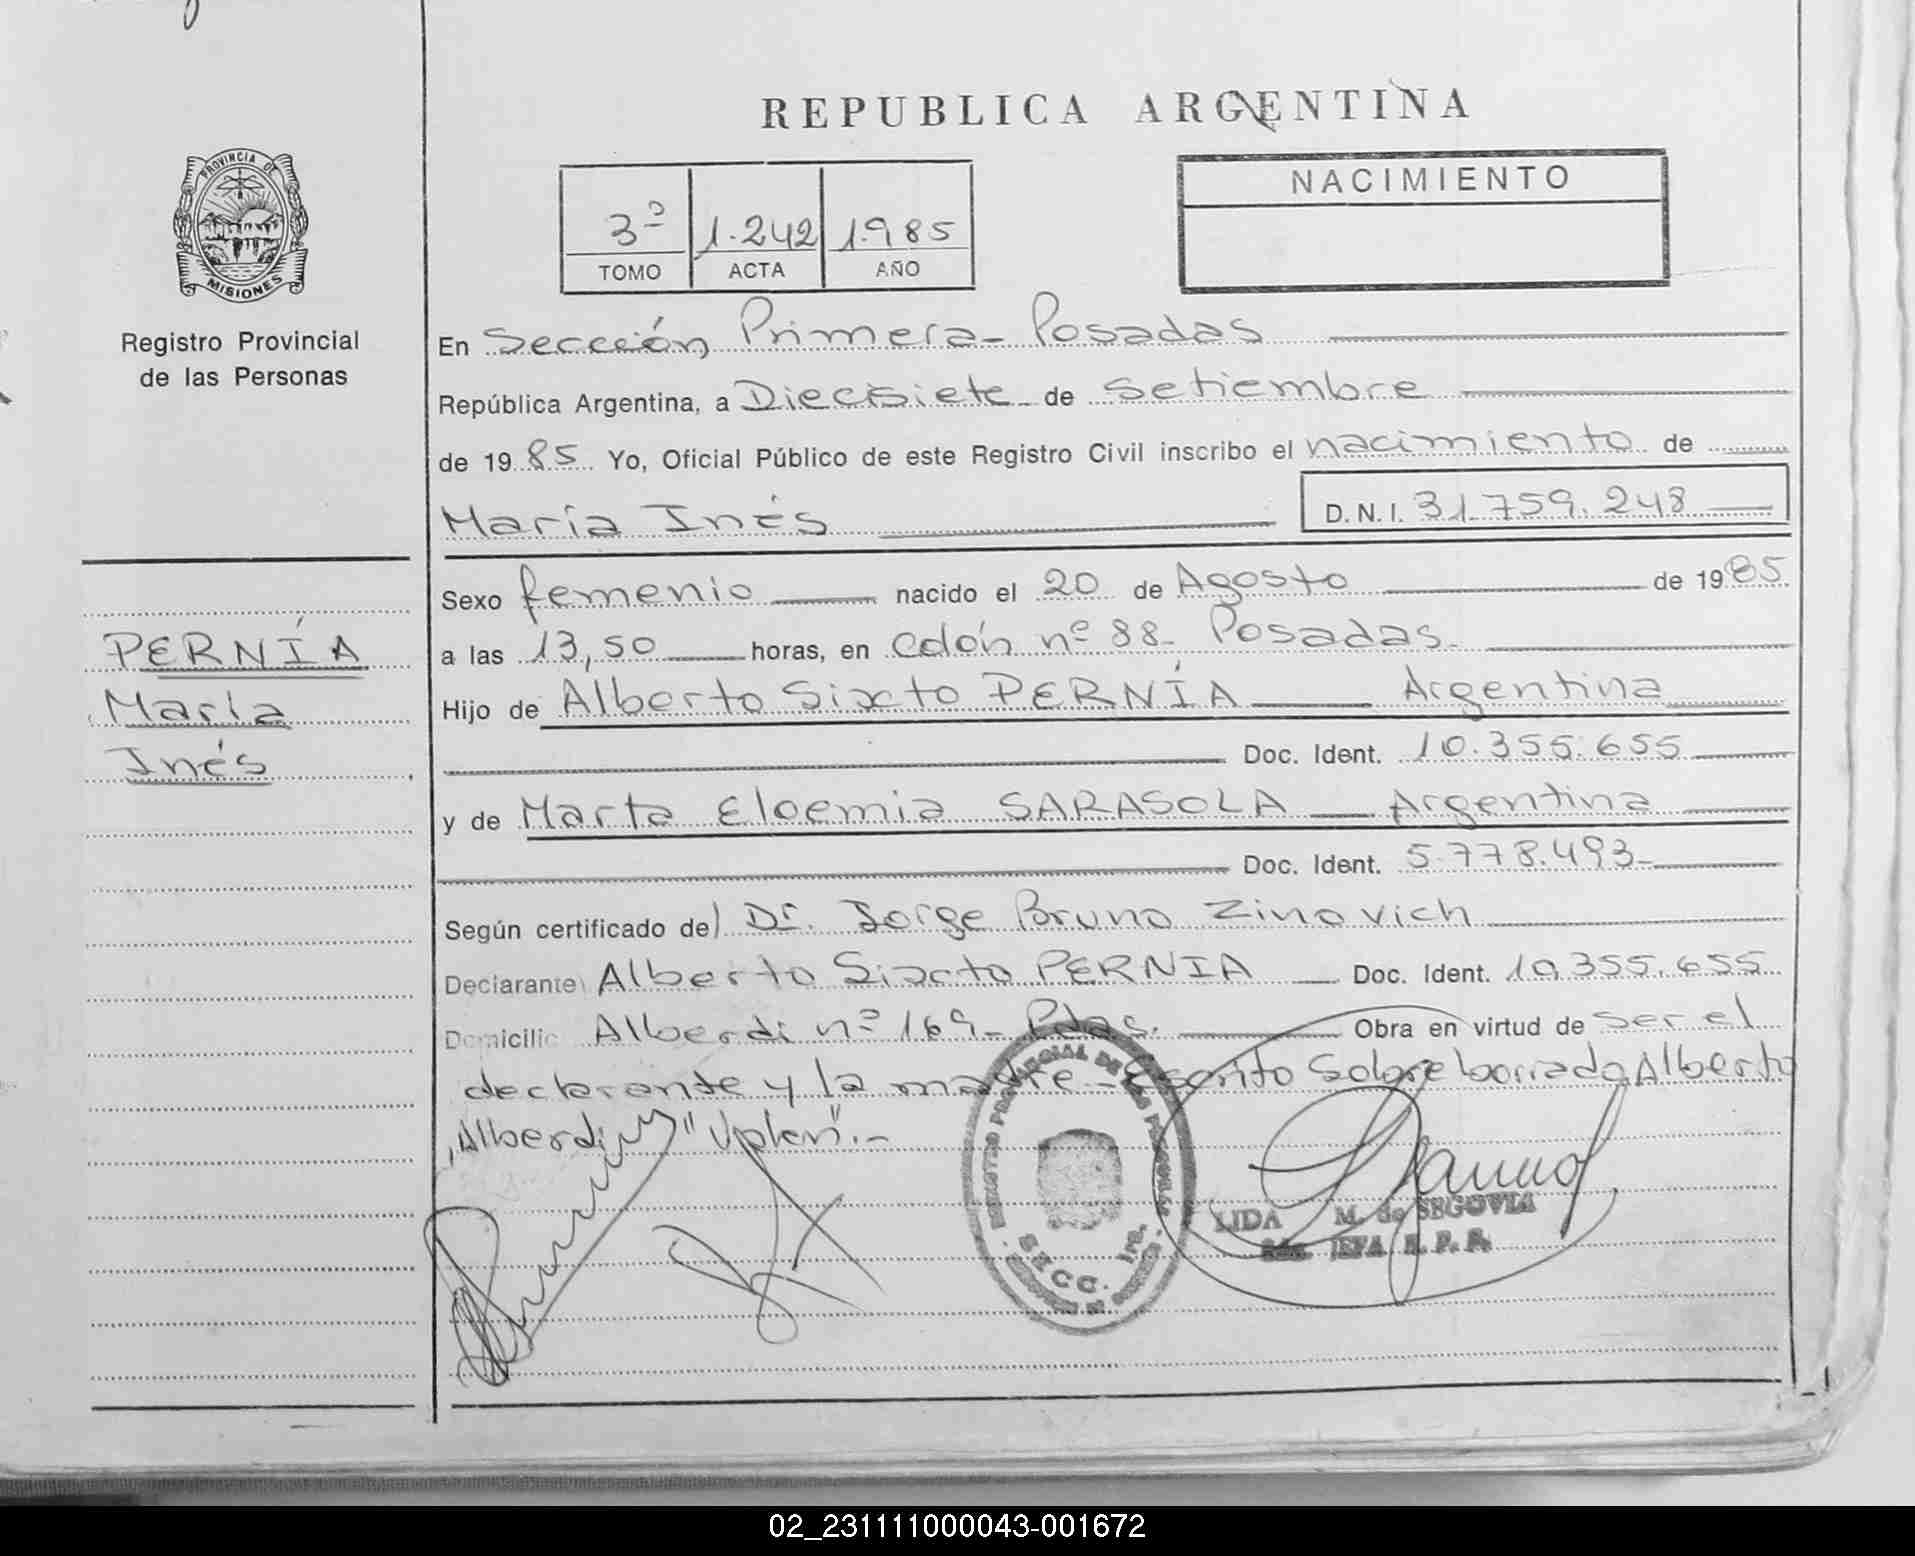 REPUBLICA ARGENTINA
PROVINCIA DE
MISIONES
Registro Provincial
de las Personas
3º 1.242 1.985
TOMO ACTA AÑO
NACIMIENTO
En Sección Primera - Posadas
República Argentina, a Diecisiete de Setiembre
de 1985 Yo, Oficial Público de este Registro Civil inscribo el nacimiento de
María Inés D.N.I. 31.759.248
PERNÍA
María
Inés
Sexo femenio nacido el 20 de Agosto de 1985
a las 13,50 horas, en Colón nº 88 - Posadas.
Hijo de Alberto Sixto PERNÍA Argentina
Doc. Ident. 10.355.655
y de Marta Eloemia SARASOLA Argentina
Doc. Ident. 5.778.493-
Según certificado del Dr. Jorge Bruno Zinovich
Declarante Alberto Sixto PERNIA Doc. Ident. 10.355.655
Domicilio Alberdi nº 169 - Pdas. Obra en virtud de ser el
declarante y la madre - Escrito sobre borrado, Alberto
"Alberdi" "Valen".-
REGISTRO PROVINCIAL DE LAS PERSONAS
SECC. 1ra.
LIDA M. de SEGOVIA
JEFA R. P. P.
02_231111000043-001672